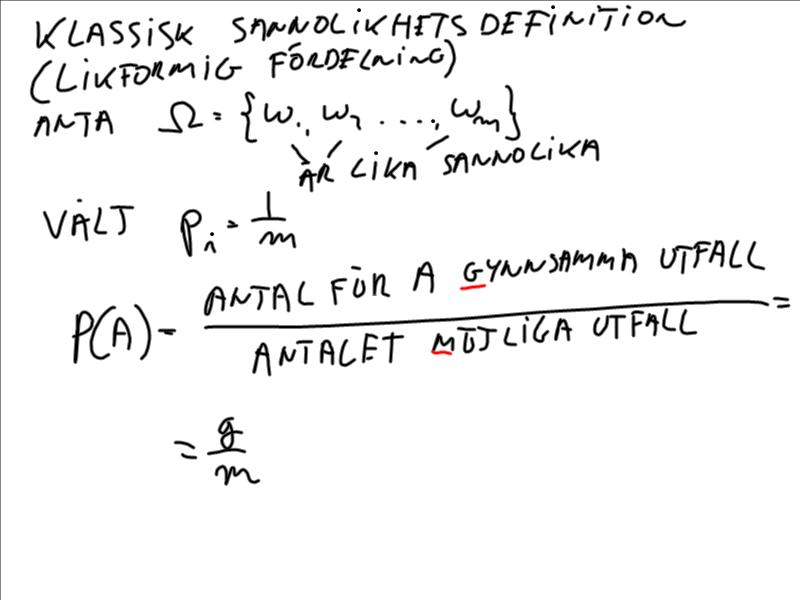 KLASSISK SANNOLIKHETSDEFINITION
(LIKFORMIG FÖRDELNING)
ANTA Ω = {ω₁, ω₂ ...., ωₘ}
ÄR LIKA SANNOLIKA
VÄLJ pᵢ = 1/m
P(A) = ANTAL FÖR A GYNNSAMMA UTFALL / ANTALET MÖJLIGA UTFALL =
= g/m